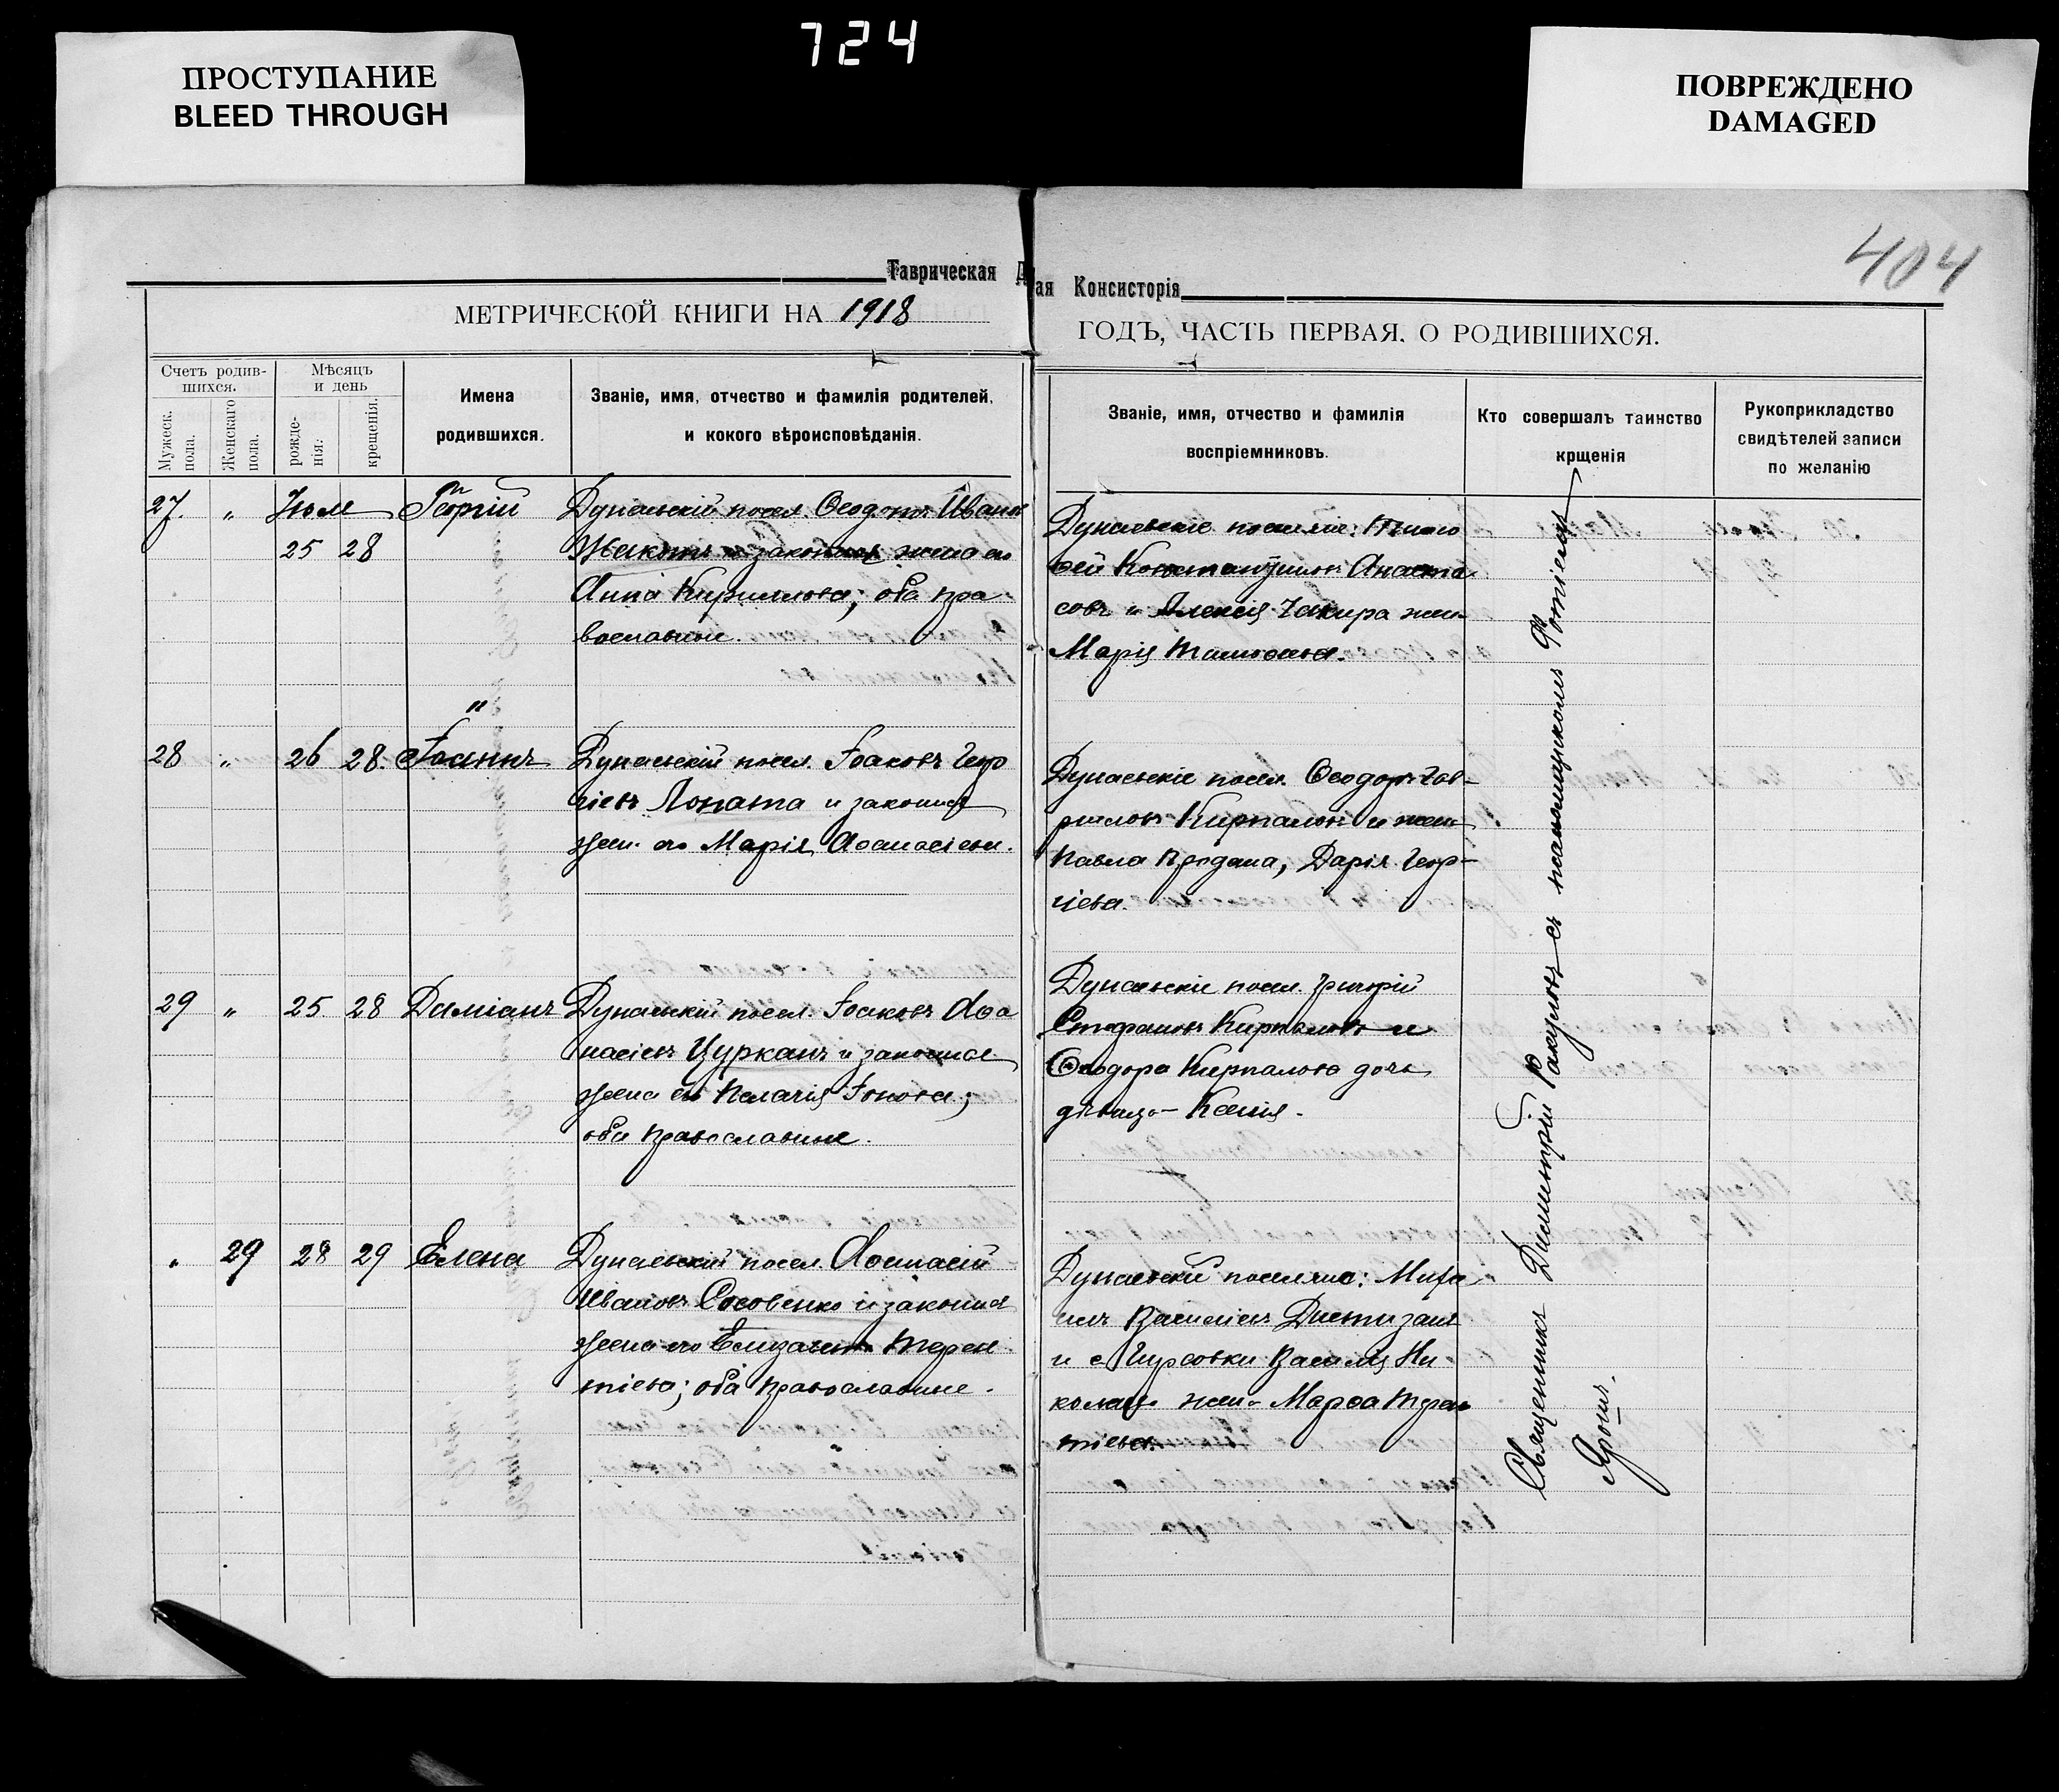 724
ПРОСТУПАНИЕ
BLEED THROUGH
ПОВРЕЖДЕНО
DAMAGED
404
Таврическая Д
ая Консисторія
МЕТРИЧЕСКОЙ КНИГИ НА 1918
ГОДЪ, ЧАСТЬ ПЕРВАЯ. О РОДИВШИХСЯ.
Счетъ родив-
шихся.
Мужеск.
пола.
Женскаго
пола.
Мѣсяцъ
и день
рожде-
нія.
крещенія.
Имена
родившихся.
Званіе, имя, отчество и фамилія родителей,
и кокого вѣроисповѣданія.
Званіе, имя, отчество и фамилія
воспріемниковъ.
Кто совершалъ таинство
крщенія
Рукоприкладство
свидѣтелей записи
по желанію
27. " Іюля Георгій
25 28
Дунаевскій посел. Ѳеодотъ Иванов
и законная жена его
Анна Кириллова; оба пра-
вославные.
Дунаевскіе поселяне: Тимо
ѳей Константиновъ Анаста
совъ и Алексія Чакира жен-
Марія
28 " 26 28. Іоаннъ
Дунаевскій посел. Іоаковъ Геор
гіевъ Лопата и законная
жен. его Марія Аѳанасіева.
Дунаевскіе посел. Ѳеодоръ Гав-
риловъ Кирпаловъ и жена
Павла Продана, Дарія Геор-
гіева.
29 " 25 28 Даміанъ
Дунаевскій посел. Іоаковъ Аѳа
насіевъ Цурканъ и законная
жена его Пелагія Іонова;
оба православные.
Дунаевскіе посел. Григорій
Стефановъ Кирпаловъ и
Ѳеодора Кирпалова дочь
дѣвица- Ксенія.
" 29 28 29 Елена
Дунаевскій посел. Аѳанасій
Ивановъ Сосовенко и законная
жена его Елизавета Терен
тіева; оба православные.
Дунаевскій поселяне: Миха
илъ Василіевъ
и с. Гирсовки Василія Ни-
колаев жен- Марѳа Терен
тіева.
Священникъ Димитрій Ракуловъ съ псаломщикомъ
Ярошъ.